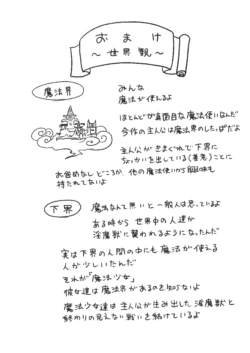 おまけ
～世界観～
魔法界
みんな
魔法が使えるよ
ほとんどが真面目な魔法使いなんだ
今作の主人公は魔法界のしたっぱだよ
主人公がきまぐれで下界に
ちょっかいを出している(著者)ことに
お咎めなしどころか、他の魔法使いから興味も
持たれてないよ
下界
魔法なんて無いと一般人は思っているよ
ある時から世界中の人達が
淫魔獣に襲われるようになったんだ
実は下界の人間の中にも魔法が使える
人が少しいたんだ
それが「魔法少女」
彼女達は魔法界があるのを知らないよ
魔法少女達は主人公が生み出した淫魔獣と
終わりの見えない戦いを続けているよ